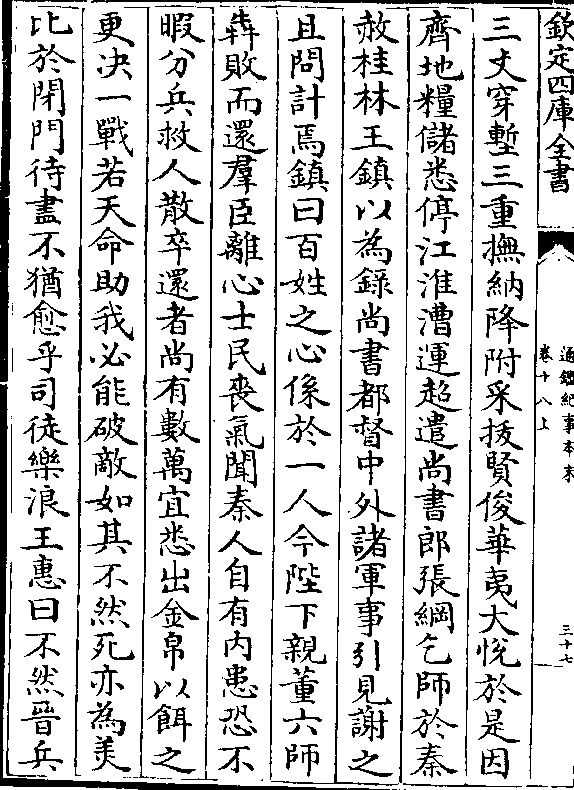 欽定四庫全書
通鑑紀事本末
卷十八上
三十七
三丈穿塹三重撫納降附采拔賢俊華夷大悅於是因
齊地糧儲悉停江淮漕運超遣尚書郎張綱乞師於秦
赦桂林王鎮以為錄尚書都督中外諸軍事引見謝之
且問計焉鎮曰百姓之心係於一人今陛下親董六師
犇敗而還羣臣離心士民喪氣聞秦人自有內患恐不
暇分兵救人散卒還者尚有數萬宜悉出金帛以餌之
更決一戰若天命助我必能破敵如其不然死亦為美
比於閉門待盡不猶愈乎司徒樂浪王惠曰不然晉兵